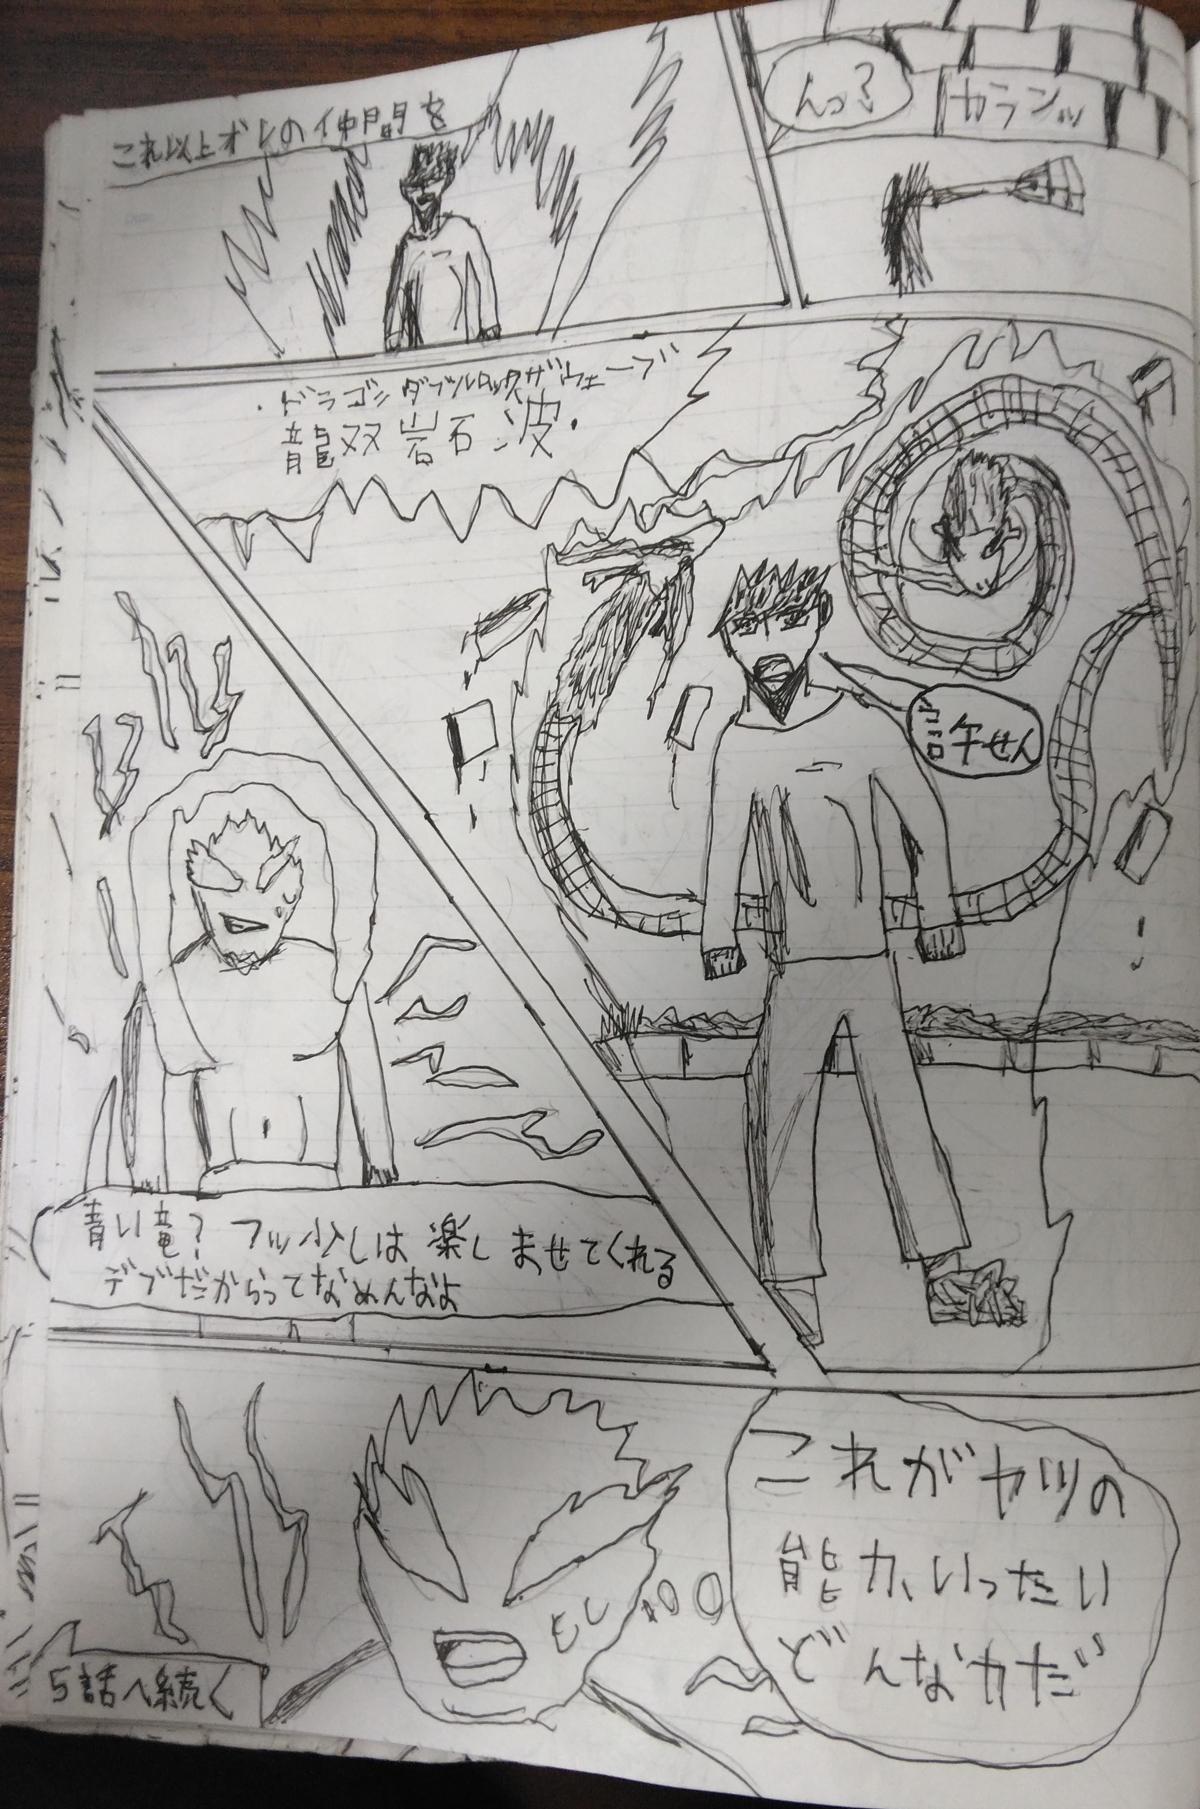 んっ?
カランッ
これ以上オレの仲間を
ドラゴンダブルロックザウェーブ
龍双岩石波
許せん
青い竜?フッ少しは楽しませてくれる
デブだからってなめんなよ
これがヤツの
能力、いったい
どんな力だ
5話へ続く